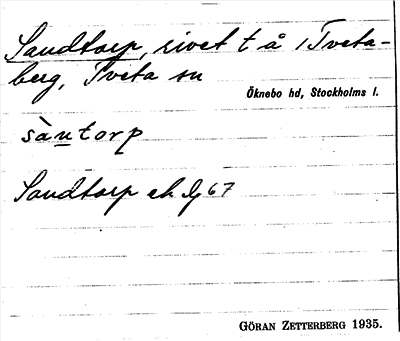 Sandtorp, rivet t å i Tveta-
berg, Tveta sn
Öknebo hd, Stockholms l.
sàntorp
Sandtorp ek Ig 67
GÖRAN ZETTERBERG 1935.